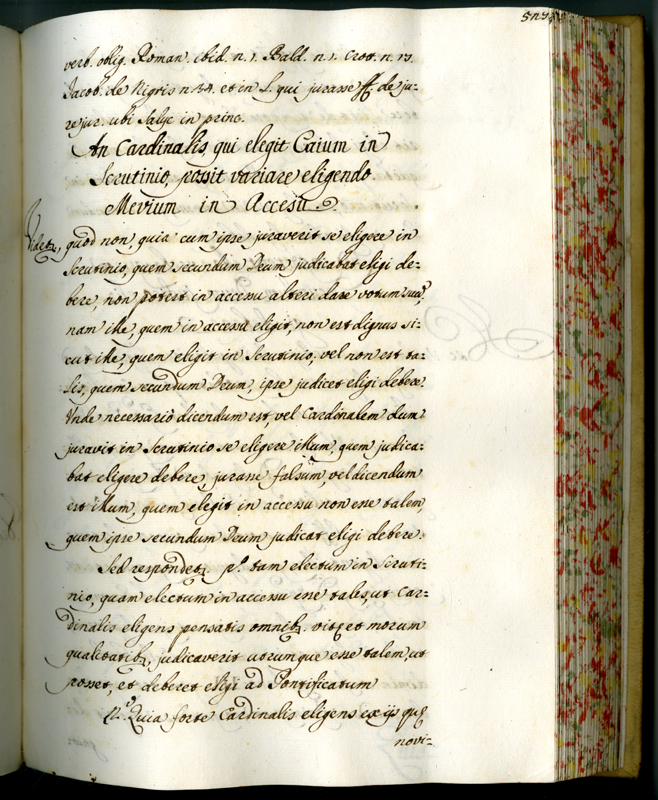 verb. oblig. Roman. ibid. n. 1. Bald. n. 1. Crot. n. 13.
Jacob. de Nigris n. 34. et in L. qui jurasse ff. de ju:
rejur. ubi Salyc. in princ.
An Cardinalis, qui elegit Caium in
Scrutinio, possit variare eligendo
Mevium in Accesu.
Videtr, quod non, quia cum ipse juraverit se eligere in
Scrutinio, quem secundum Deum judicabat eligi de:
bere, non poterit in accesu alteri dare votum suũ,
nam ille, quem in accesu eligit, non est dignus si:
cut ille, quem eligit in Scrutinio, vel non est ta:
lis, quem secundum Deum, ipse judicet eligi debere.
Unde necessariò dicendum est, vel Cardinalem dum
juravit in Scrutinio se eligere illum, quem judica:
bat eligere debere, jurasse falsum vel dicendum
est illum, quem elegit in accesu non esse talem,
quem ipse secundum Deum judicat eligi debere.
Sed respondetr. pº. tam electum in Scruti:
nio, quam electum in accesu esse tales, ut Car:
dinalis eligens pensatis omnib. vitę et morum
qualitatib. judicaverit utrumque esse talem, ut
posset, et deberet eligi ad Pontificatum
2.º Quia forte Cardinalis eligens ex ijs quę
novi: